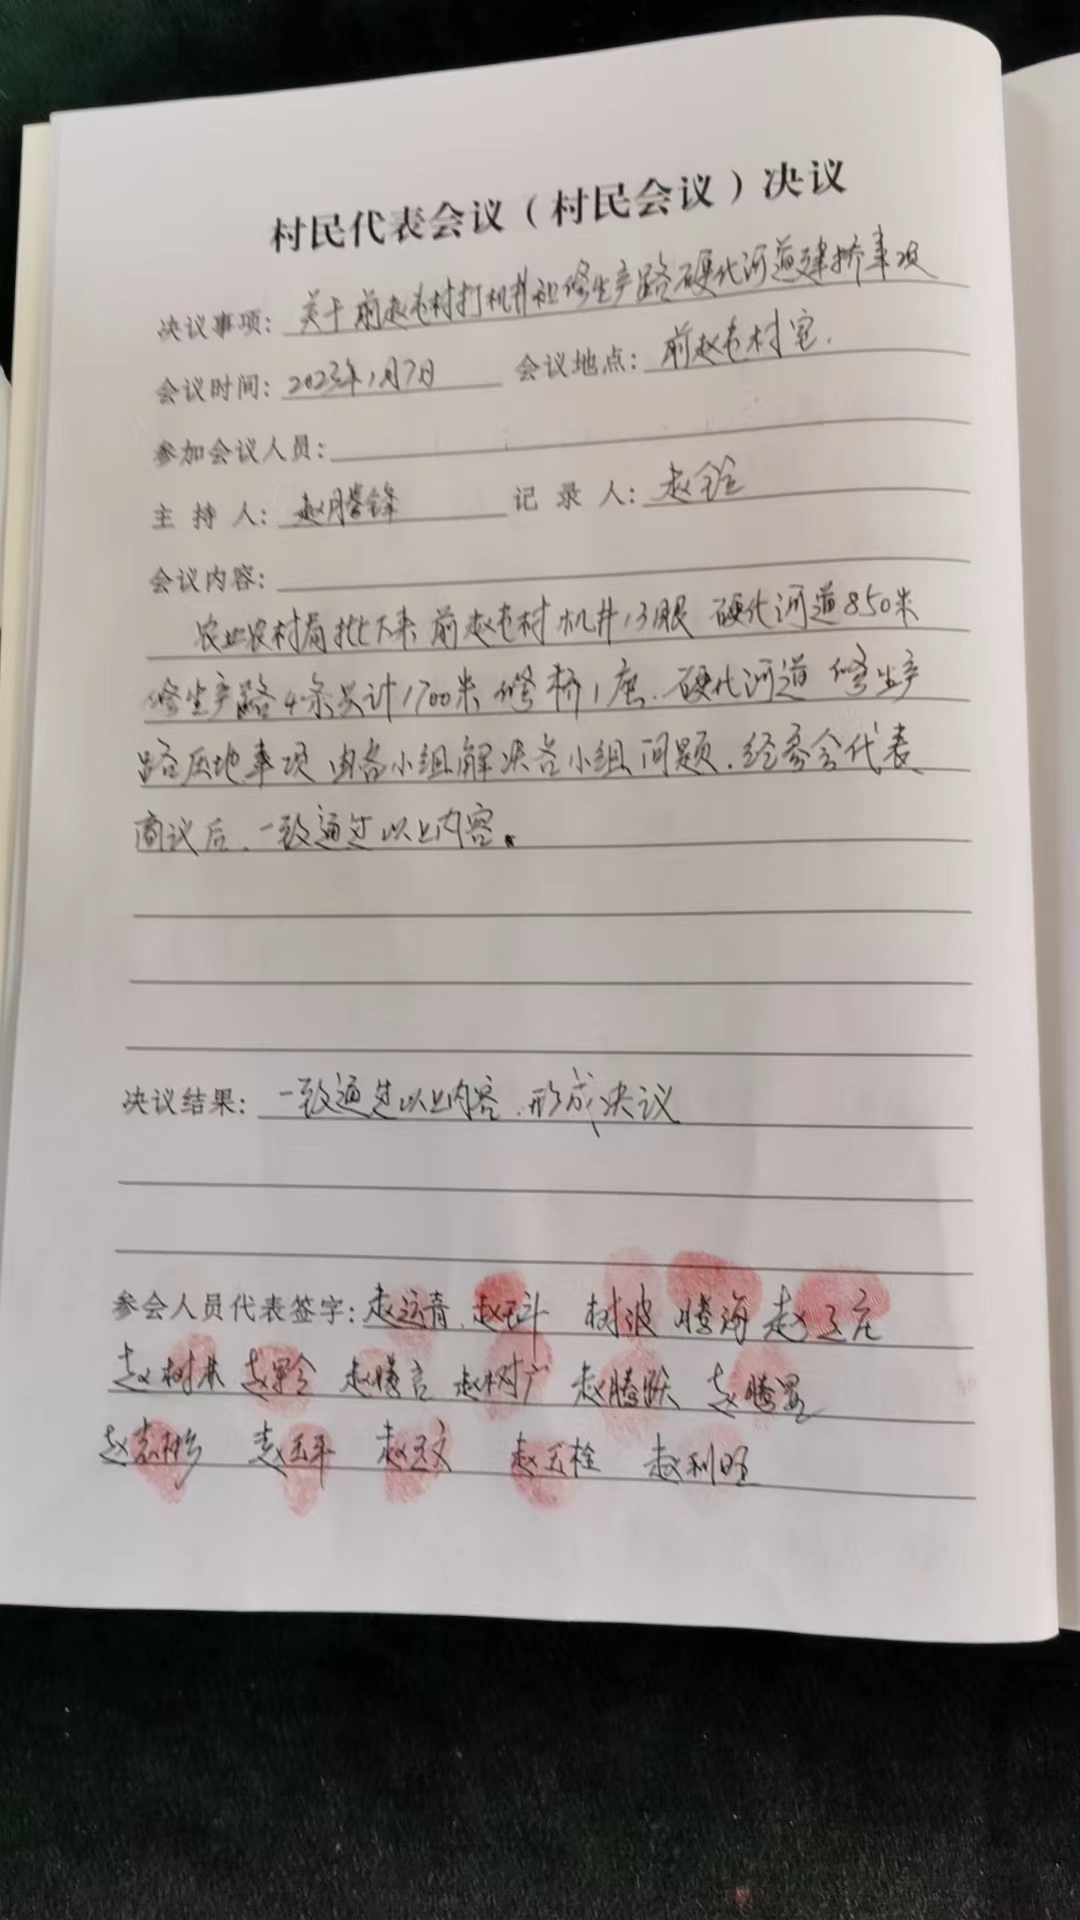 村民代表会议（村民会议）决议
决议事项：关于前赵屯村打机井和修生产路硬化河道建桥事项
会议时间：2023年1月7日 会议地点：前赵屯村室.
参加会议人员：
主 持 人：赵腾锋 记 录 人：赵全
会议内容：
农业农村局批下来 前赵屯村 机井13眼 硬化河道850米
修生产路4条共计1700米 修桥1座. 硬化河道 修生产
路压地事项 由各小组解决各小组问题. 经参会代表
商议后. 一致通过以上内容。
决议结果：一致通过以上内容. 形成决议
参会人员代表签字：赵运青. 赵玉斗 树波 腾海 赵玉庄
赵树林 赵腾言 赵树广 赵腾跃
赵玉平 赵玉文 赵玉栓 赵利旺